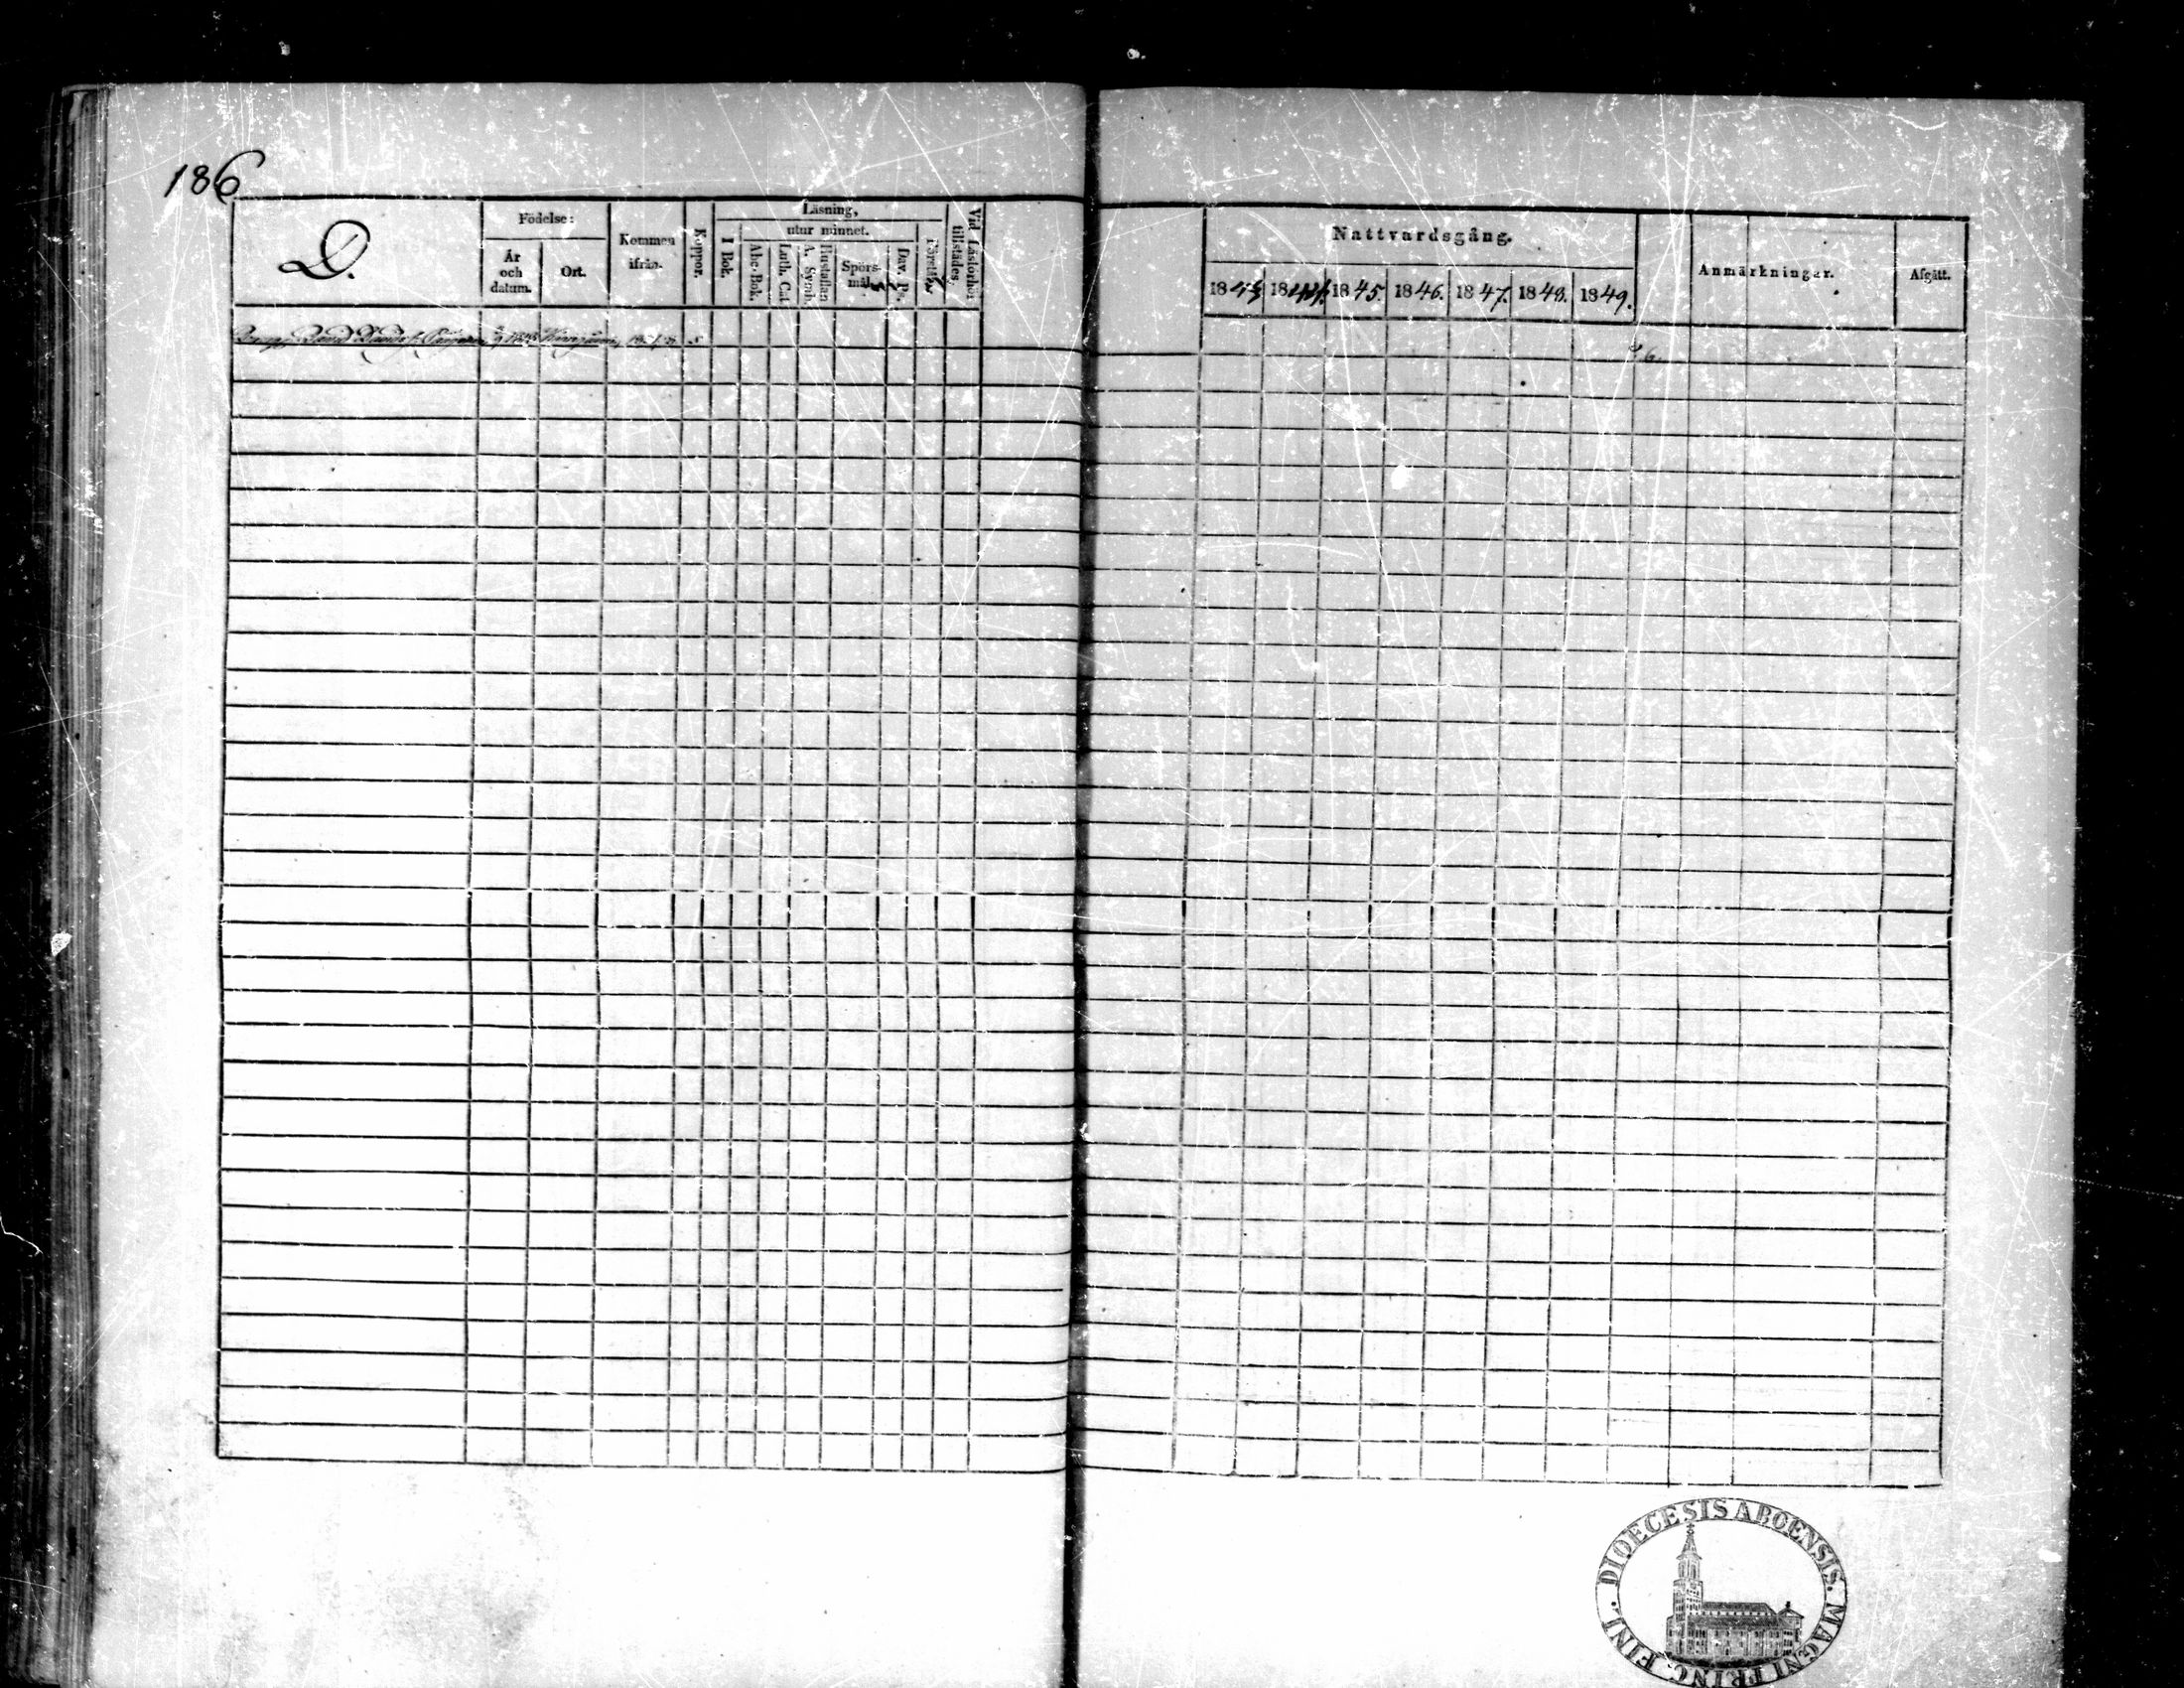 186
D.
Födelse:
År och datum.
Ort.
Kommen ifrån.
Koppor.
Läsning,
utur minnet.
I Bok.
Abc-Bok.
Luth. Cat.
A. Symb.
Hustaflan
Spörs-mål.
Dav. Ps.
Förstår
Vid Läsförhör tillstädes.
Nattvardsgång.
1843 1844. 1845. 1846. 1847. 1848. 1849.
Anmärkningar.
Afgått.
David
6.
DIOECESIS ABOENSIS. MAGNI PRINC. FINL.